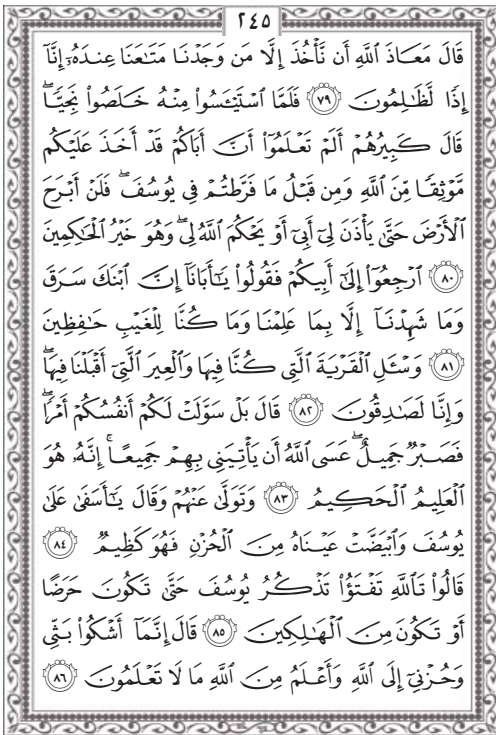 ٢٤٥
قَالَ مَعَاذَ ٱللَّهِ أَن نَّأۡخُذَ إِلَّا مَن وَجَدۡنَا مَتَٰعَنَا عِندَهُۥٓ إِنَّآ
إِذٗا لَّظَٰلِمُونَ ٧٩ فَلَمَّا ٱسۡتَيۡـَٔسُواْ مِنۡهُ خَلَصُواْ نَجِيّٗاۖ
قَالَ كَبِيرُهُمۡ أَلَمۡ تَعۡلَمُوٓاْ أَنَّ أَبَاكُمۡ قَدۡ أَخَذَ عَلَيۡكُم
مَّوۡثِقٗا مِّنَ ٱللَّهِ وَمِن قَبۡلُ مَا فَرَّطتُمۡ فِي يُوسُفَۖ فَلَنۡ أَبۡرَحَ
ٱلۡأَرۡضَ حَتَّىٰ يَأۡذَنَ لِيٓ أَبِيٓ أَوۡ يَحۡكُمَ ٱللَّهُ لِيۖ وَهُوَ خَيۡرُ ٱلۡحَٰكِمِينَ
٨٠ ٱرۡجِعُوٓاْ إِلَىٰٓ أَبِيكُمۡ فَقُولُواْ يَٰٓأَبَانَآ إِنَّ ٱبۡنَكَ سَرَقَ
وَمَا شَهِدۡنَآ إِلَّا بِمَا عَلِمۡنَا وَمَا كُنَّا لِلۡغَيۡبِ حَٰفِظِينَ
٨١ وَسۡـَٔلِ ٱلۡقَرۡيَةَ ٱلَّتِي كُنَّا فِيهَا وَٱلۡعِيرَ ٱلَّتِيٓ أَقۡبَلۡنَا فِيهَاۖ
وَإِنَّا لَصَٰدِقُونَ ٨٢ قَالَ بَلۡ سَوَّلَتۡ لَكُمۡ أَنفُسُكُمۡ أَمۡرٗاۖ
فَصَبۡرٞ جَمِيلٌۖ عَسَى ٱللَّهُ أَن يَأۡتِيَنِي بِهِمۡ جَمِيعًاۚ إِنَّهُۥ هُوَ
ٱلۡعَلِيمُ ٱلۡحَكِيمُ ٨٣ وَتَوَلَّىٰ عَنۡهُمۡ وَقَالَ يَٰٓأَسَفَىٰ عَلَىٰ
يُوسُفَ وَٱبۡيَضَّتۡ عَيۡنَاهُ مِنَ ٱلۡحُزۡنِ فَهُوَ كَظِيمٞ ٨٤
قَالُواْ تَٱللَّهِ تَفۡتَؤُاْ تَذۡكُرُ يُوسُفَ حَتَّىٰ تَكُونَ حَرَضًا
أَوۡ تَكُونَ مِنَ ٱلۡهَٰلِكِينَ ٨٥ قَالَ إِنَّمَآ أَشۡكُواْ بَثِّي
وَحُزۡنِيٓ إِلَى ٱللَّهِ وَأَعۡلَمُ مِنَ ٱللَّهِ مَا لَا تَعۡلَمُونَ ٨٦